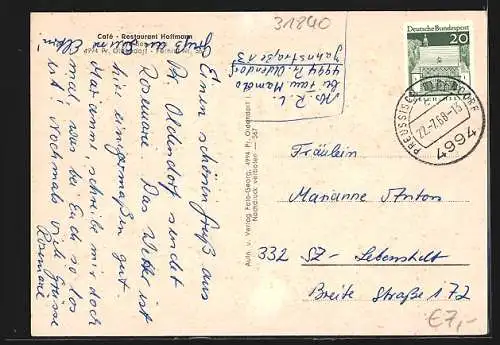 Café - Restaurant Hoffmann
4994 Pr. Oldendorf
Einen schönen Gruß aus
Pr. Oldendorf sendet
Rosemarie. Das Wetter ist
hier einigermaßen gut.
Marianne, schreibe mir doch
mal, was bei Euch so los
ist. Nochmals viele Grüsse
Rosmarie
Gruß an Deine
Eltern!
Abs. R. L.
4994 Pr. Oldendorf
Jahnstraße 13
Aufn. u. Verlag Foto-Georg, 4994 Pr. Oldendorf I - 567
Nachdruck verboten
31840
Deutsche Bundespost
20
PREUSSISCH OLDENDORF
22-7.68-15
4994
Fräulein
Marianne Anton
332 SZ-Lebenstedt
Breite Straße 172
€7,-